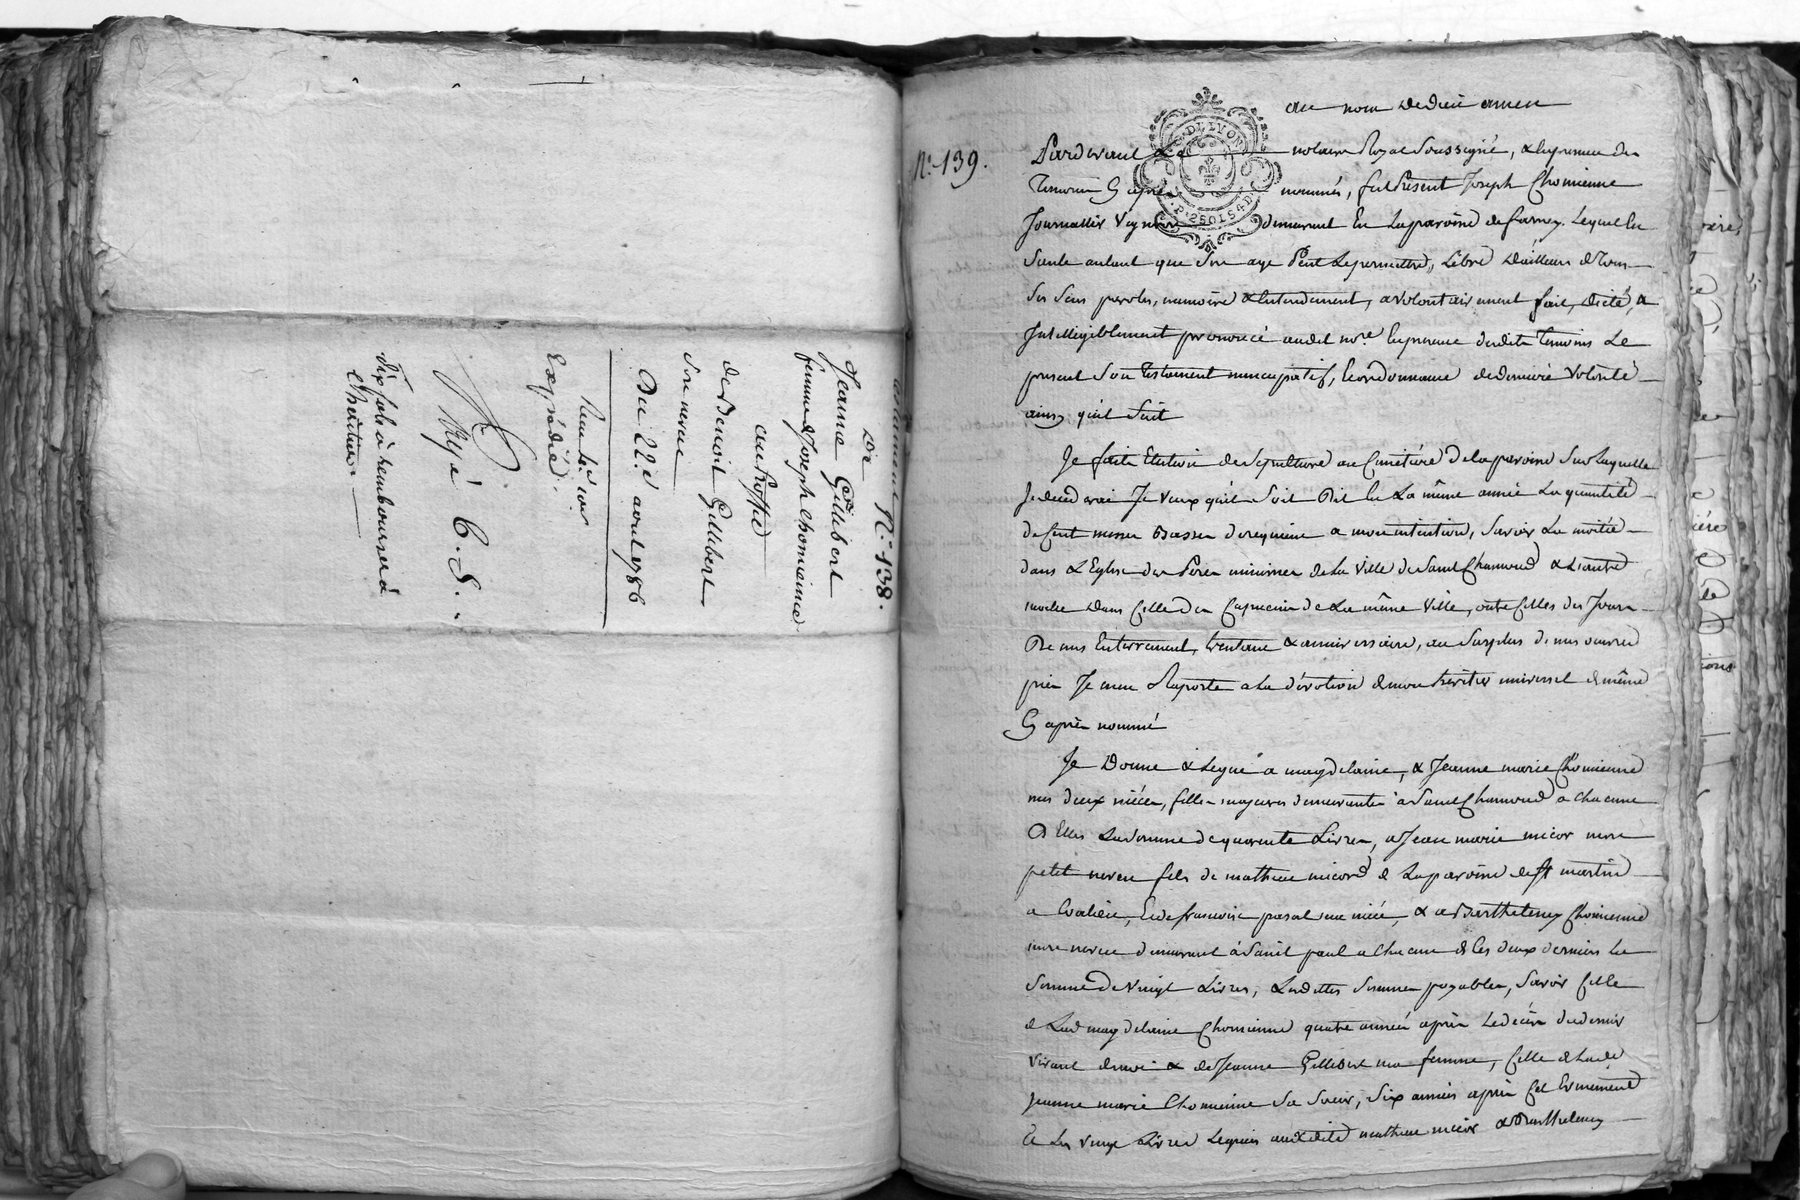 testament N.° 138.
De
Jeanne Gillibert
femme de Joseph Chomienne
au profit
de Benoit Gillibert
son neveu
Du 22.e avril 1786
Expédié.
Rexé C. S.
dix sols à rembourser à
l'héritier
N.° 139.
au nom de dieu amen
DE LYON
P. 250154 D.
Pardevant Le notaire Royal soussigné, & en presence des
Temoins Cy après nommés, fut Présent Joseph Chomienne
Journallier Vigneron demeurant En la paroisse de farnay. Lequel En
Santé autant que Son age Peut Le permettre, Libre d'ailleurs de Tous
Ses Sens parole, memoire & Entendement, a volontairement fait, dicté, &
Intelligiblement prononcé audit no.re En presence desdits Temoins Le
present Son Testament nuncupatif, & ordonnance de derniere Volonté
ainsy qu'il Suit
Je faits Election de Sepulture au Cimetiere de la paroisse Sur laquelle
Je decederai Je veux qu'il Soit Dit En La même année La quantité
de Cent messes Basses de requiem a mon intention, Savoir La moitié
dans L'Eglise des Peres minimes de La Ville de Saint Chamond & L'autre
moitié Dans Celle des Capucins de La même Ville, outre Celles des Jours
De mes Enterrement, trentaine & anniversaire, au Surplus de mes œuvres
pies Je m'en Raporte a La dévotion de mon héritier universel de même
Cy après nommé
Je Donne & Legue a magdelaine, & Jeanne marie Chomienne
mes deux niéces, filles majeures demeurantes à Saint Chamond a chacune
D'Elles La Somme de quarente Livres, a Jean marie micol mon
petit neveu fils de mathieu micol de La paroisse de St martin
a Coalieu, & de françoise pascal ma niéce, & a Barthelemy Chomienne
mon neveu demeurant à Saint paul a Chacun de Ces deux derniers La
Somme de Vingt Livres, Lesdittes Sommes payables, Savoir Celle
de Lad. magdelaine Chomienne quatre années après Le décès du dernier
Vivant de moi & de Jeanne Gillibert ma femme, Celle de Lade
Jeanne marie Chomienne Sa Sœur, Six années après Cet Evenement
Et Les vingt Livres Leguées auxdits mathieu micol & Barthelemy